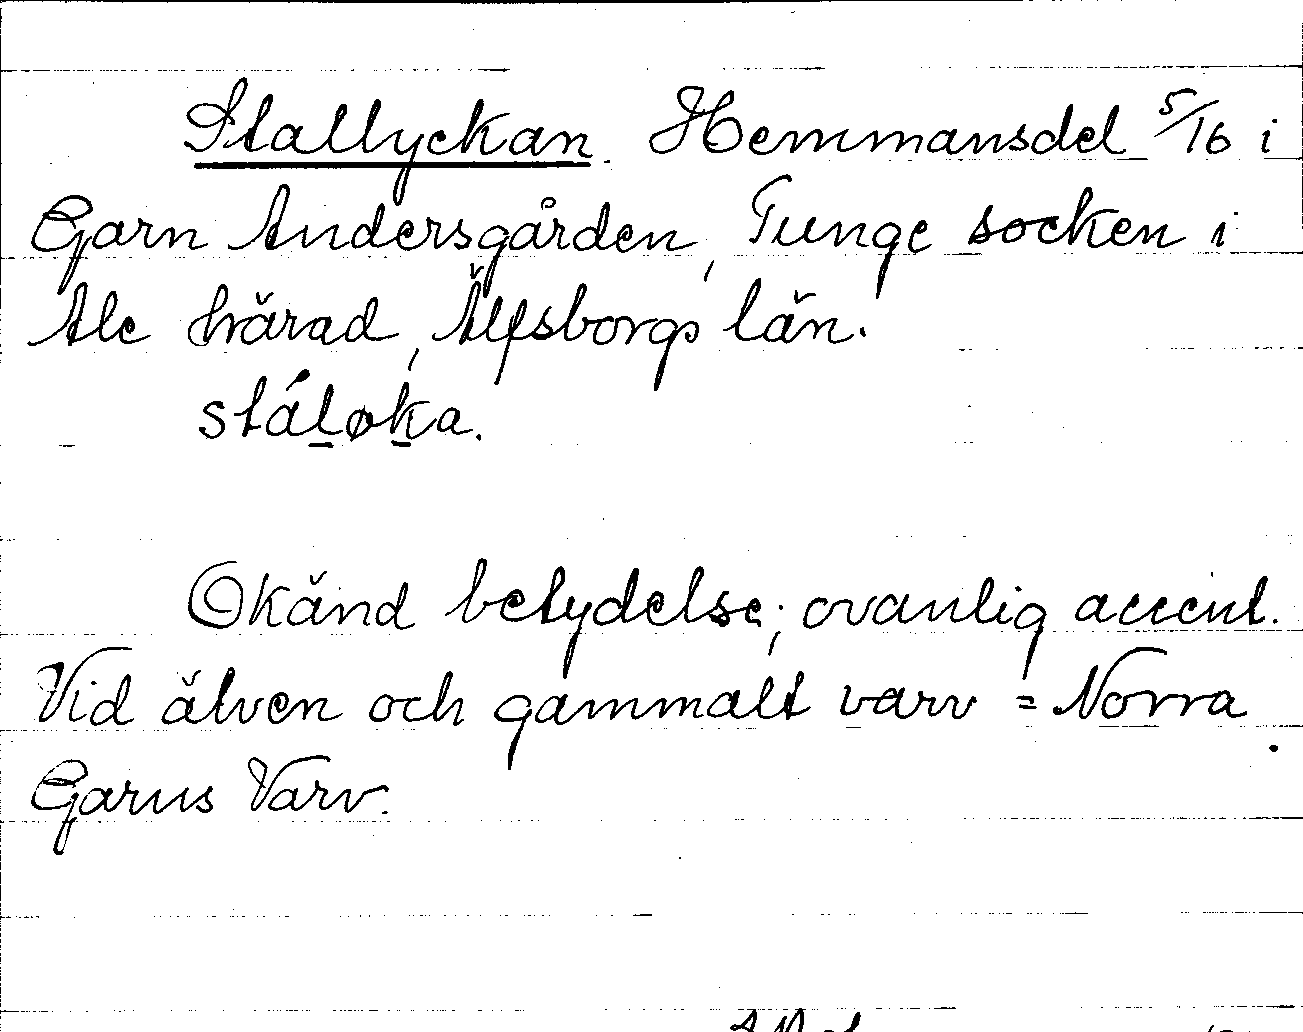 Stallyckan. Hemmansdel 5/16 i
Garn Andersgården, Tunge socken i
Ale härad, Älfsborgs län.
stáløka.
Okänd betydelse; ovanlig accent.
Vid älven och gammalt varv = Norra
Garns Varv.